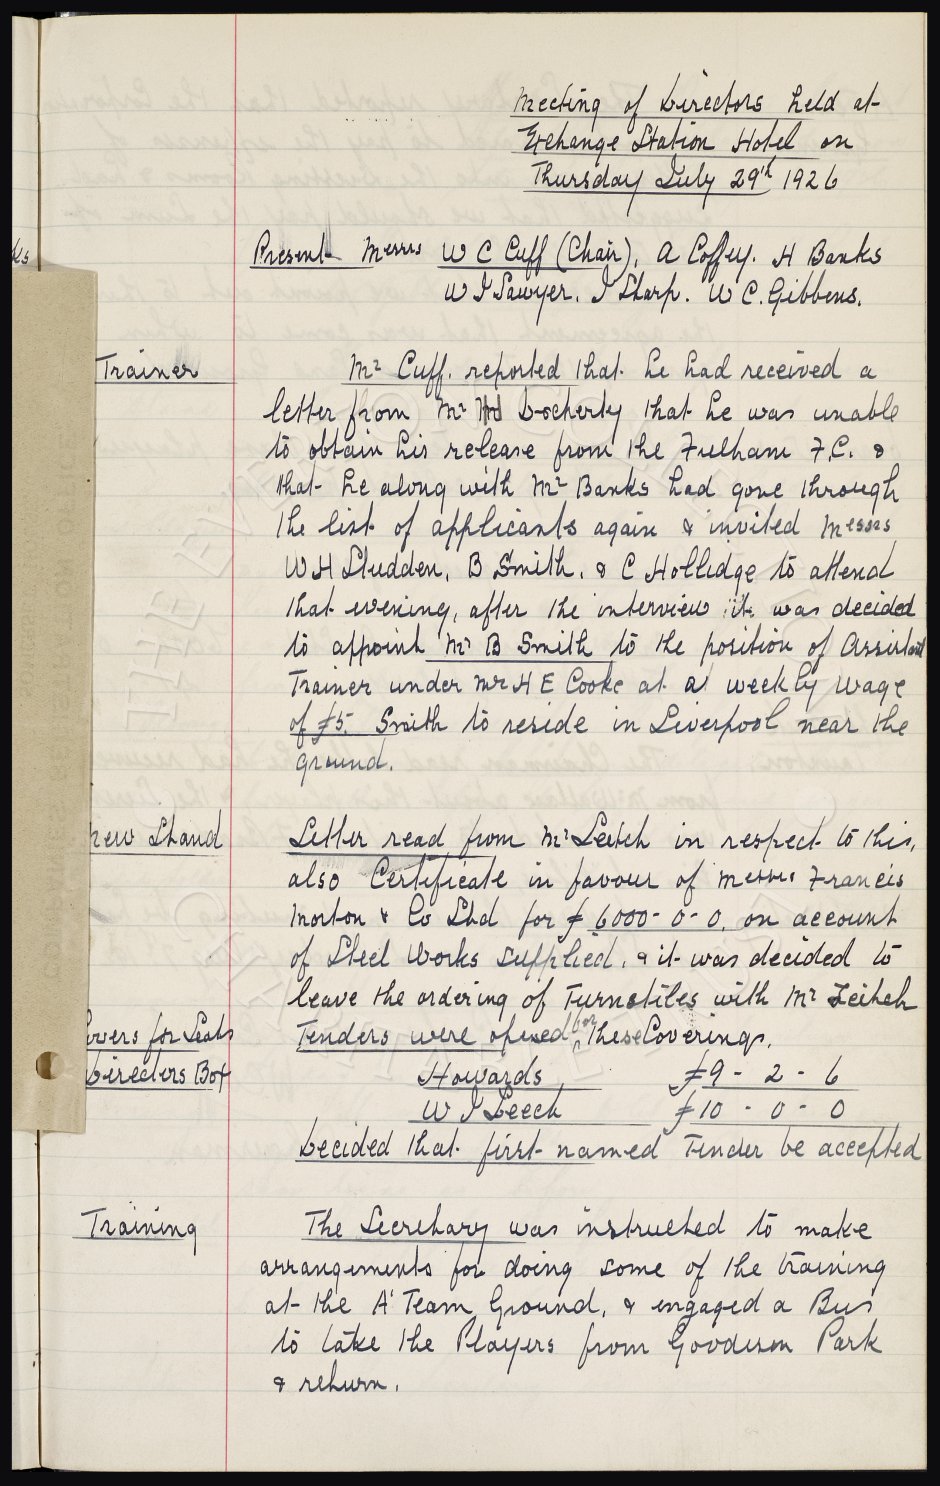 Meeting of Directors held at
Exchange Station Hotel on
Thursday July 29th 1926
ks
Present Messrs W C Cuff (Chair), A Coffey. H Banks
W J Sawyer. J Sharp. W C. Gibbens.
Trainer
Mr Cuff. reported that he had received a
letter from Mr Docherty that he was unable
to obtain his release from the Fulham F.C. &
that he along with Mr Banks had gone through
the list of applicants again & invited Messrs
W H Studden, B Smith, & C Holledge to attend
that evening, after the interview it was decided
to appoint Mr B Smith to the position of Assistant
Trainer under Mr H E Cooke at a weekly wage
of £5. Smith to reside in Liverpool near the
ground.
New Stand
Letter read from Mr Leitch in respect to this,
also Certificate in favour of Messrs Francis
Morton & Co Ltd for £6000-0-0. on account
of Steel Works supplied, & it was decided to
leave the ordering of Turnstiles with Mr Leitch
Covers for Seats
Directors Box
Tenders were opened for these Coverings.
Howards £9 - 2 - 6
W J Leech £10 - 0 - 0
Decided that first named Tender be accepted
Training
The Secretary was instructed to make
arrangements for doing some of the training
at the A' Team Ground, & engaged a Bus
to take the Players from Goodison Park
& return.